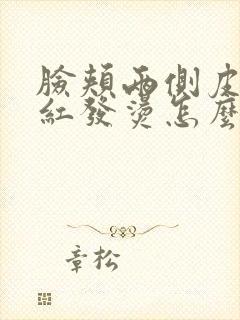 臉頰兩側皮
紅發燙怎麼
章松